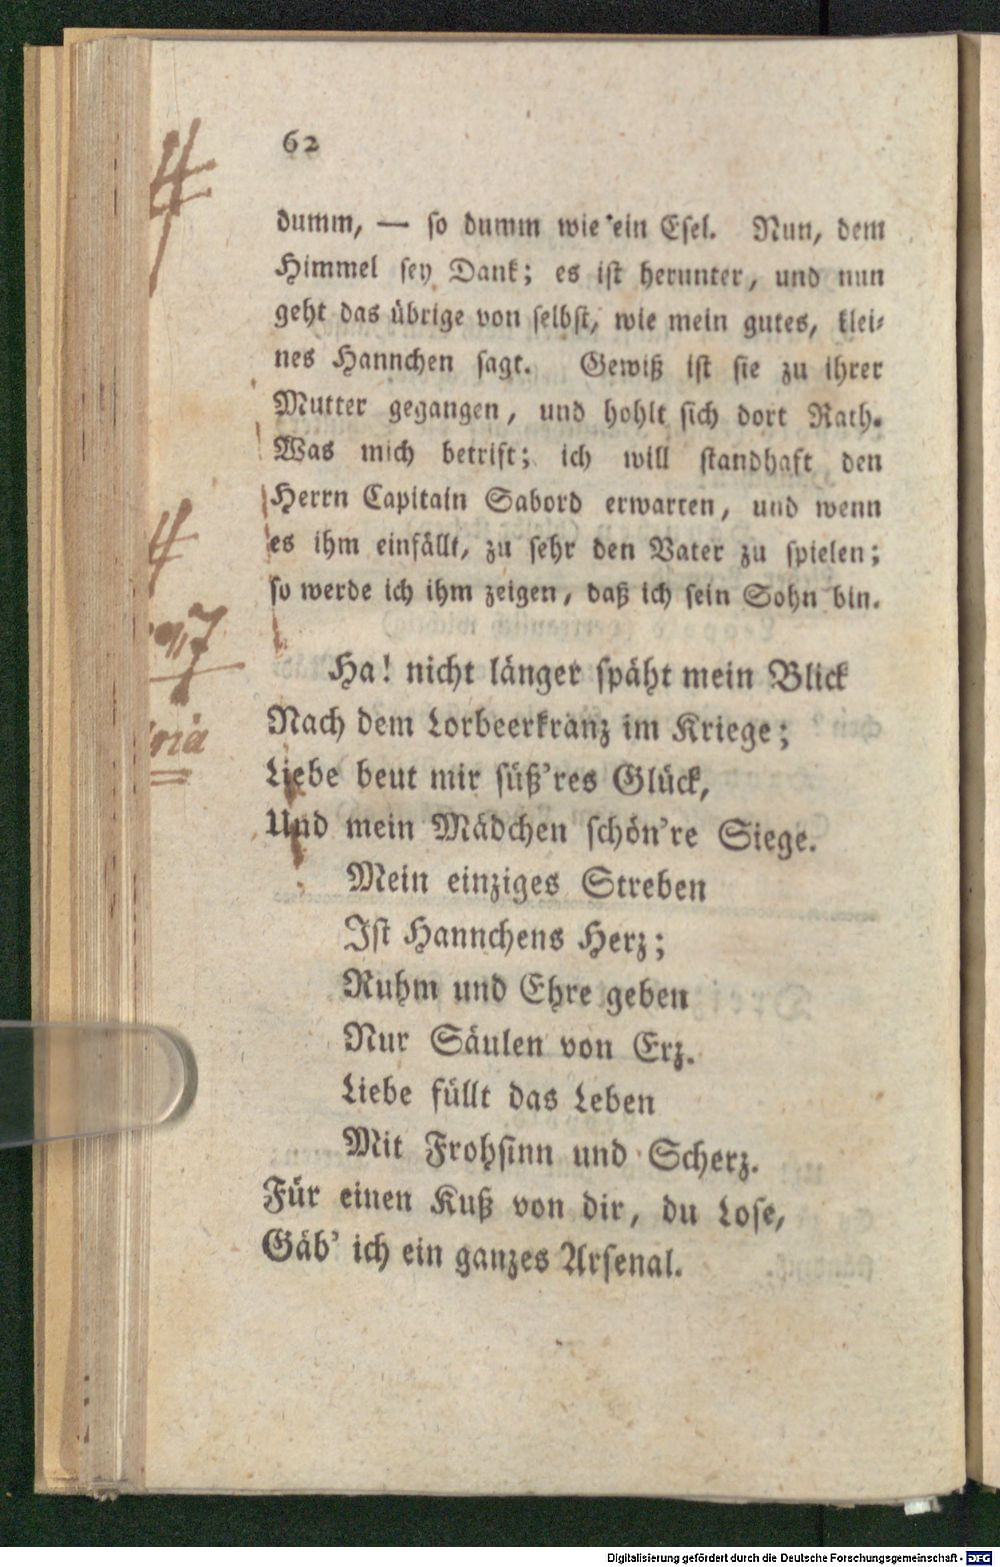 62
dumm, — so dumm wie ein Esel. Nun, dem
Himmel sey Dank; es ist herunter, und nun
geht das übrige von selbst, wie mein gutes, klei-
nes Hannchen sagt. Gewiß ist sie zu ihrer
Mutter gegangen, und hohlt sich dort Rath.
Was mich betrift; ich will standhaft den
Herrn Capitain Sabord erwarten, und wenn
es ihm einfällt, zu sehr den Vater zu spielen;
so werde ich ihm zeigen, daß ich sein Sohn bin.
Ha! nicht länger späht mein Blick
Nach dem Lorbeerkranz im Kriege;
Liebe beut mir süß'res Glück,
Und mein Mädchen schön're Siege.
Mein einziges Streben
Ist Hannchens Herz;
Ruhm und Ehre geben
Nur Säulen von Erz.
Liebe füllt das Leben
Mit Frohsinn und Scherz.
Für einen Kuß von dir, du Lose,
Gäb' ich ein ganzes Arsenal.
Digitalisierung gefördert durch die Deutsche Forschungsgemeinschaft - DFG